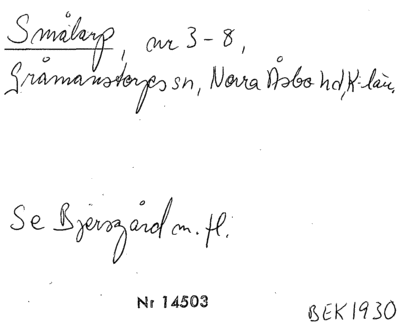 Smålarp, nr 3-8,
Gråmanstorps sn, Norra Åsbo hd, K-län.
Se Bjersgård m. fl.
Nr 14503
BEK 1930